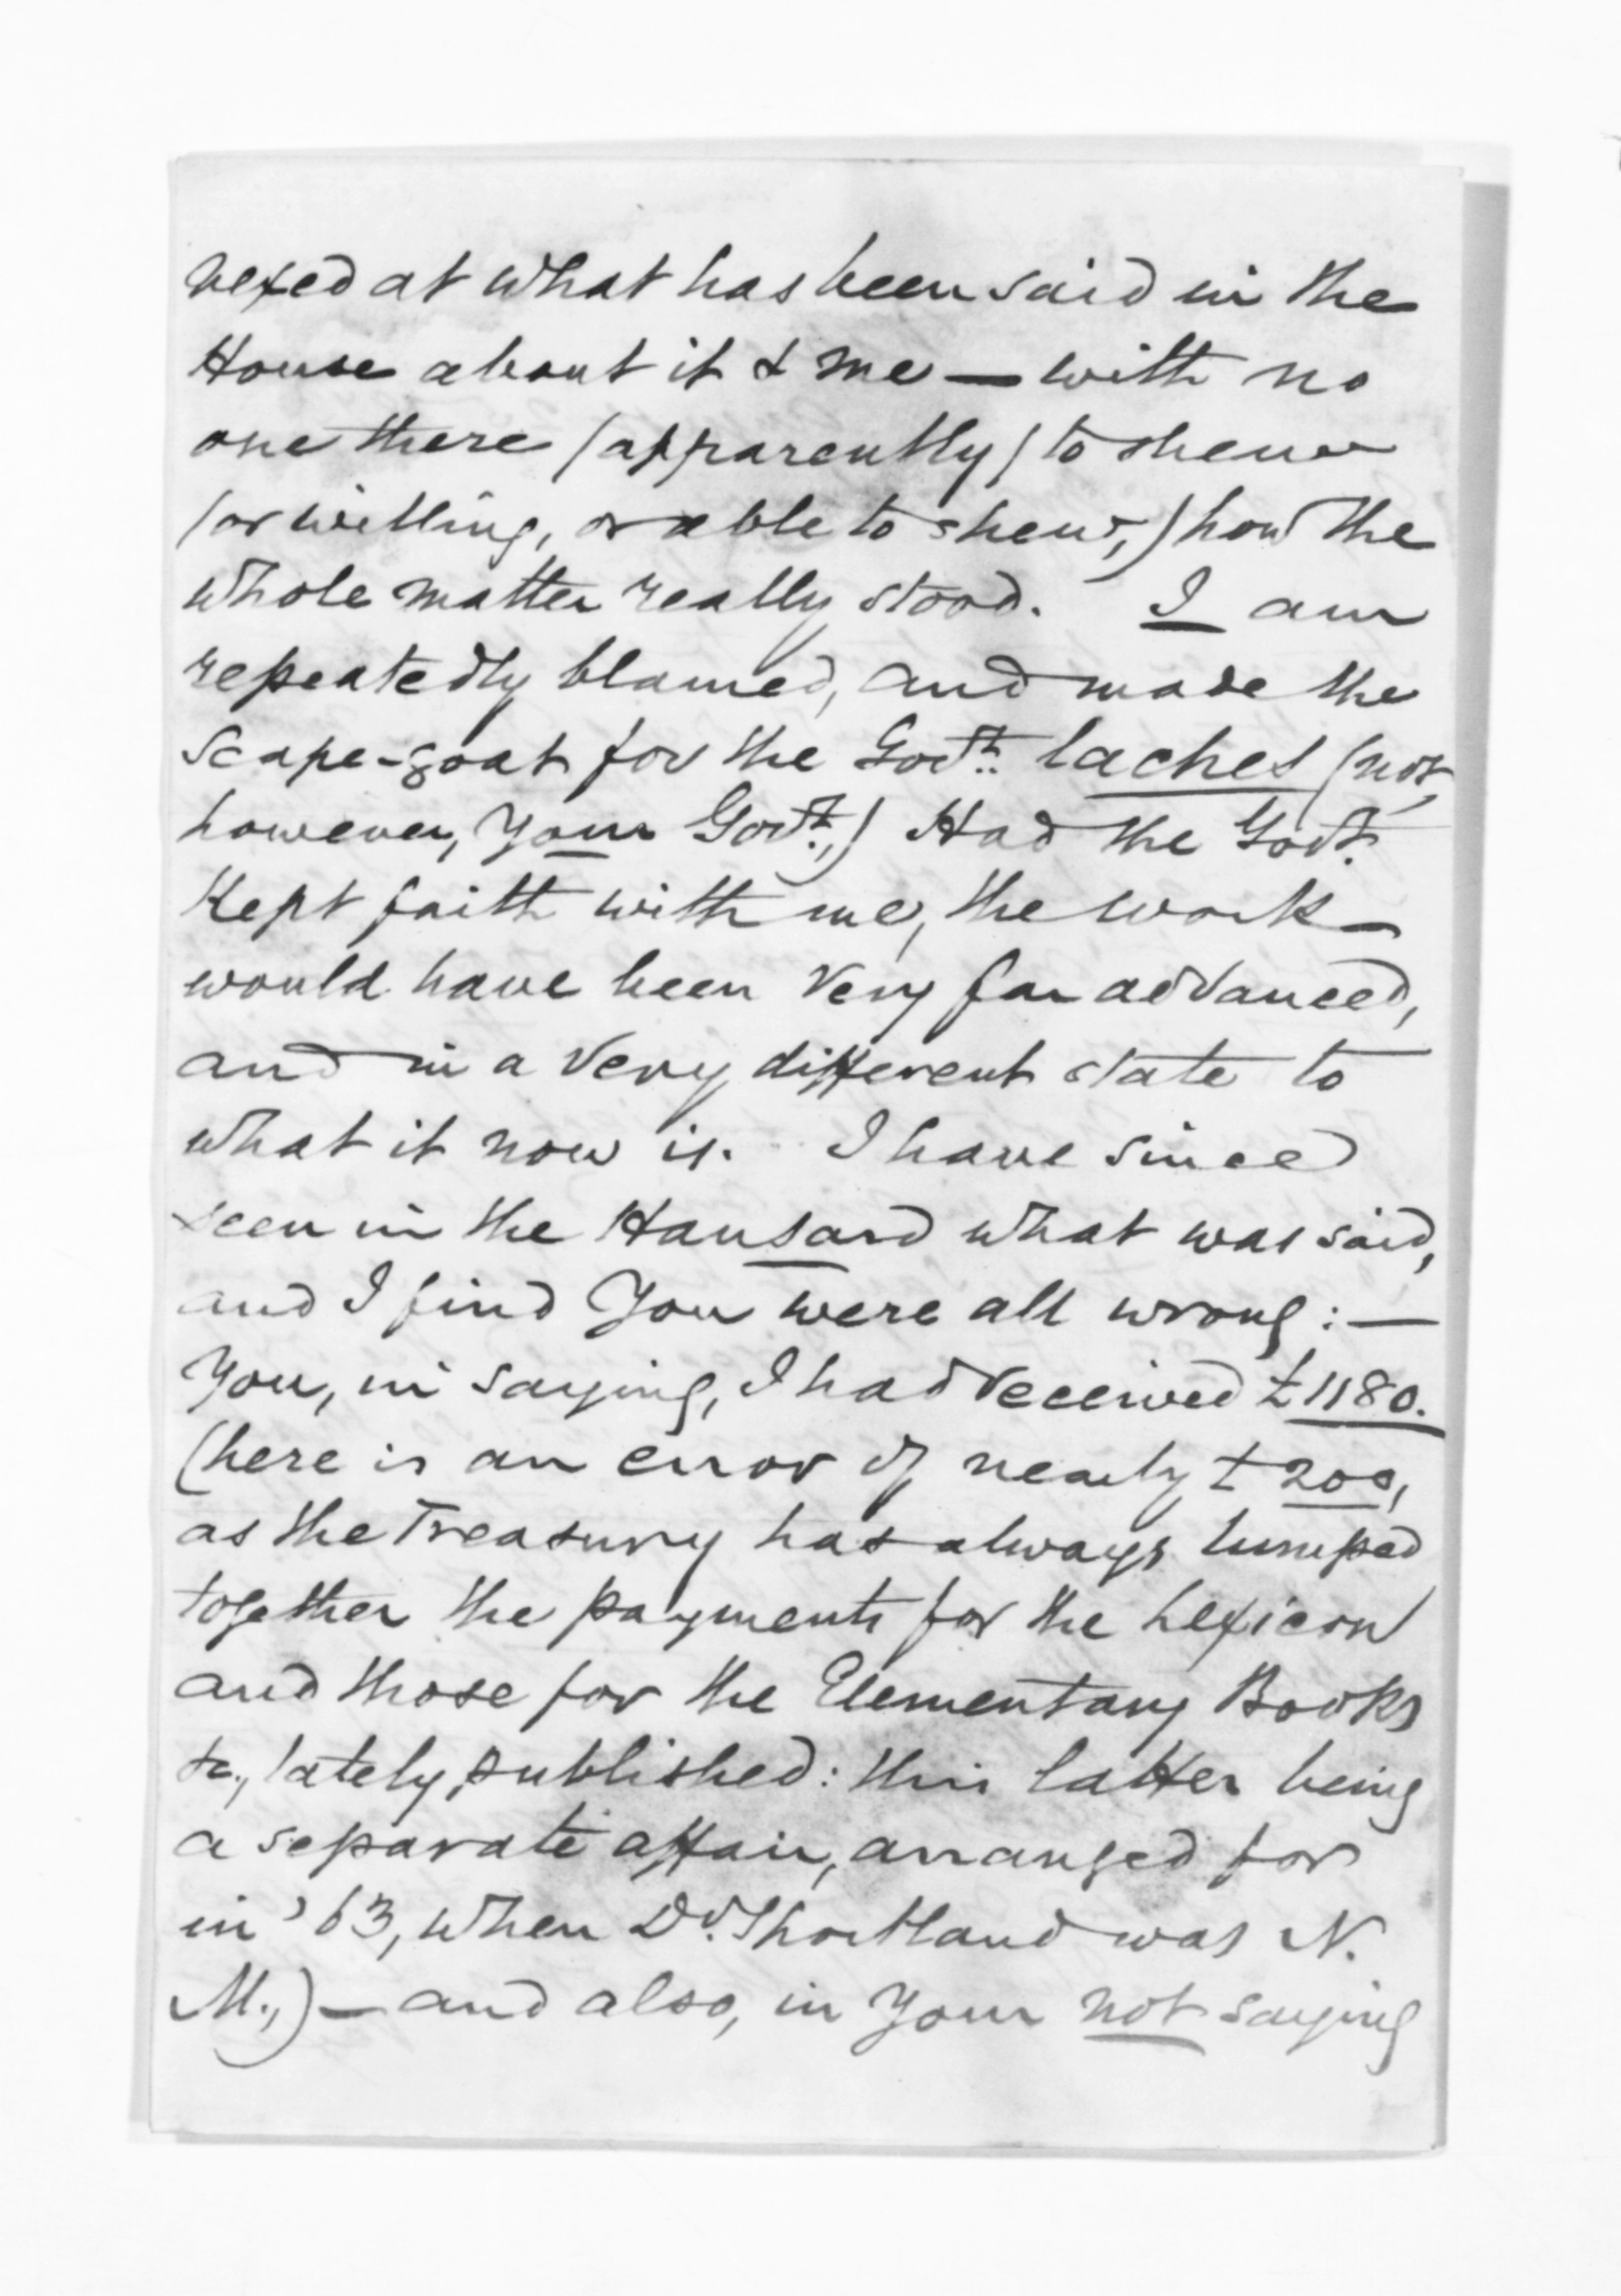 vexed at what has been said in the
House about it & me — with no
one there (apparently) to shew
(or willing, or able to shew,) how the
whole matter really stood. I am
repeatedly blamed, and made the
scape-goat for the Govt. laches (not,
however, your Govt.,) Had the Govt.
kept faith with me, the work
would have been very far advanced,
and in a very different state to
what it now is. I have since
seen in the Hansard what was said,
and I find you were all wrong: —
You, in saying, I had received £1180.
(here is an error of nearly £200,
as the Treasury has always lumped
together the payments for the Lexicon
and those for the Elementary Books
&c., lately published: this latter being
a separate affair, arranged for
in '63, when Dr. Shortland was N.
M.,) — and also, in your not saying